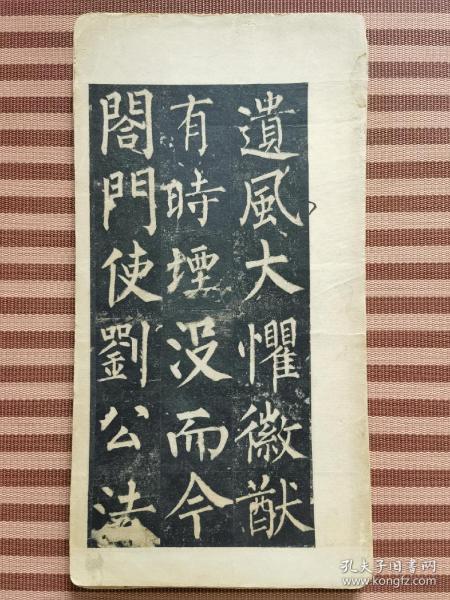 遺風大懼徽猷
有時堙没而今
閤門使劉公法
孔夫子旧书网
www.kongfz.com